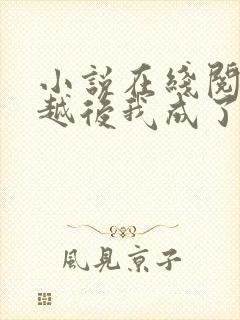 小說在綫閱
越後我成了
風見京子